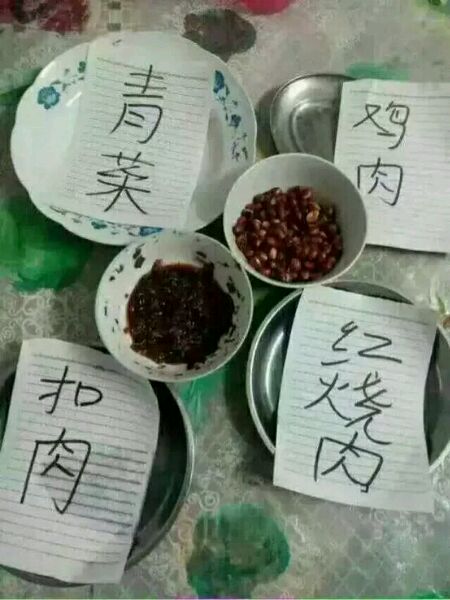 青菜
鸡肉
扣肉
红烧肉